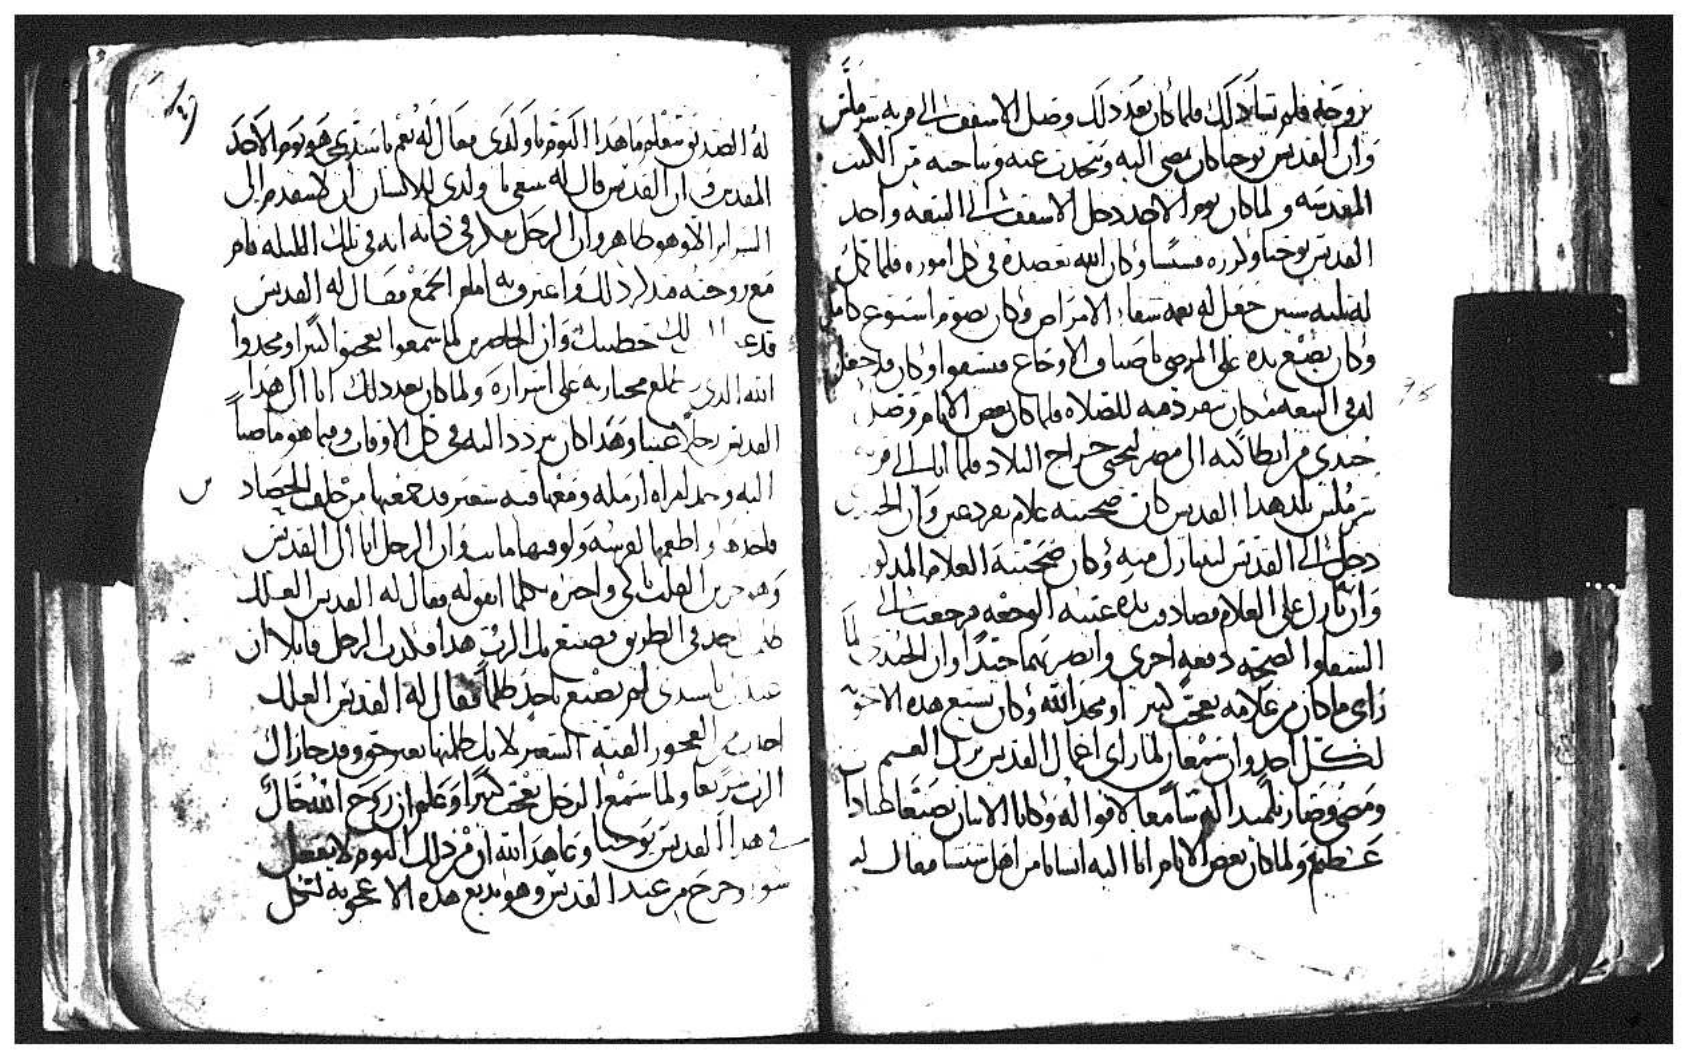 يزوجه فلم يشا ذلك فلما كان بعد ذلك وصل الاسقف الى قريه شرملس
وان القديس يوحنا كان يمضي اليه ويتحدث عنه ويباحثه من الكتب
المقدسه ولما كان يوم الاحد دخل الاسقف الى البيعه واخد
القديس يوحنا وكرزه قسيسا وكان الله يعضده في كل اموره فلما كمل
له ثلثه سنين جعل له نعمه شفاء الامراض وكان يصوم اسبوع كامل
وكان يضع يده على المرضى باصناف الاوجاع فيشفوا وكان قد جعل
له في البيعه مكان منفرد فيه للصلاه فلما كان بعض الايام وصل
جندي من انطاكيه الى مصر ليجبي خراج البلاد فلما اتى الى قريه
شرملس بلد هدا القديس كان صحبته غلام بفرد عين وان الجندي
دخل الى القديس ليتبارك منه وكان صحبته الغلام المدكور
وان بارك على الغلام فصادف يده عينه الوجعه فرجعت الى
الشفا والصحه دفعه اخرى وابصر بهما جيدا وان الجندي لما
راى ما كان من غلامه تعجب كثير او مجد الله وكان يشيع هده الاعجوبه
لكل احد وان شمعان لما راى اعمال القديس ترك الغنم
ومضى وصار تلميدا له سامعا لاقواله وكانا الاثنان يصنعا طبا دا
عظيم ولما كان بعض الايام اتا اليه انسانا من اهل شنشا فقال له
له الصديق تعلم ما هدا اليوم يا ولدي فقال له نعم يا سيدي هو يوم الاحد
المقدس وان القديس قال له ينبغي يا ولدي للانسان ان لا يتقدم الى
السراير الا وهو طاهر وان الرجل تفكر في داته انه في تلك الليله نام
مع زوجته فندكر دلك واعترف به امام الجمع فقال له القديس
قد غفر لك خطيتك وان الحاضرين لما سمعوا تعجبوا كثيرا ومجدوا
الله الدي يطلع مختاريه على اسراره ولما كان بعد دلك اتا الى هدا
القديس رجلا غنيا وهدا كان يتردد اليه في كل الاوقات وفيما هو ماضيا
اليه وجد امراه ارمله ومعها قفه شعير قد جمعتها من خلف الحصاد
فاخدها واطعمها لفرسه ولوقتها ماتت وان الرجل اتا الى القديس
وهو حزين القلب باكي واخبره بكلما اتفق له فقال له القديس لعلك
ظلمت احد في الطريق فصنع بك الرب هدا فكدب الرجل قايلا ان
عبدك يا سيدي لم يصنع باحد ظلما فقال له القديس لعلك
اخدت من العجوز القفه الشعير لانك ظلمتها بغير حق وقد جازاك
الرب سريعا ولما سمع الرجل تعجب كثيرا وعلم ان روح الله حال
في هدا القديس يوحنا وعاهد الله ان من دلك اليوم لا يفعل
سوء وخرج من عند القديس وهو يديع هده الاعجوبه لكل